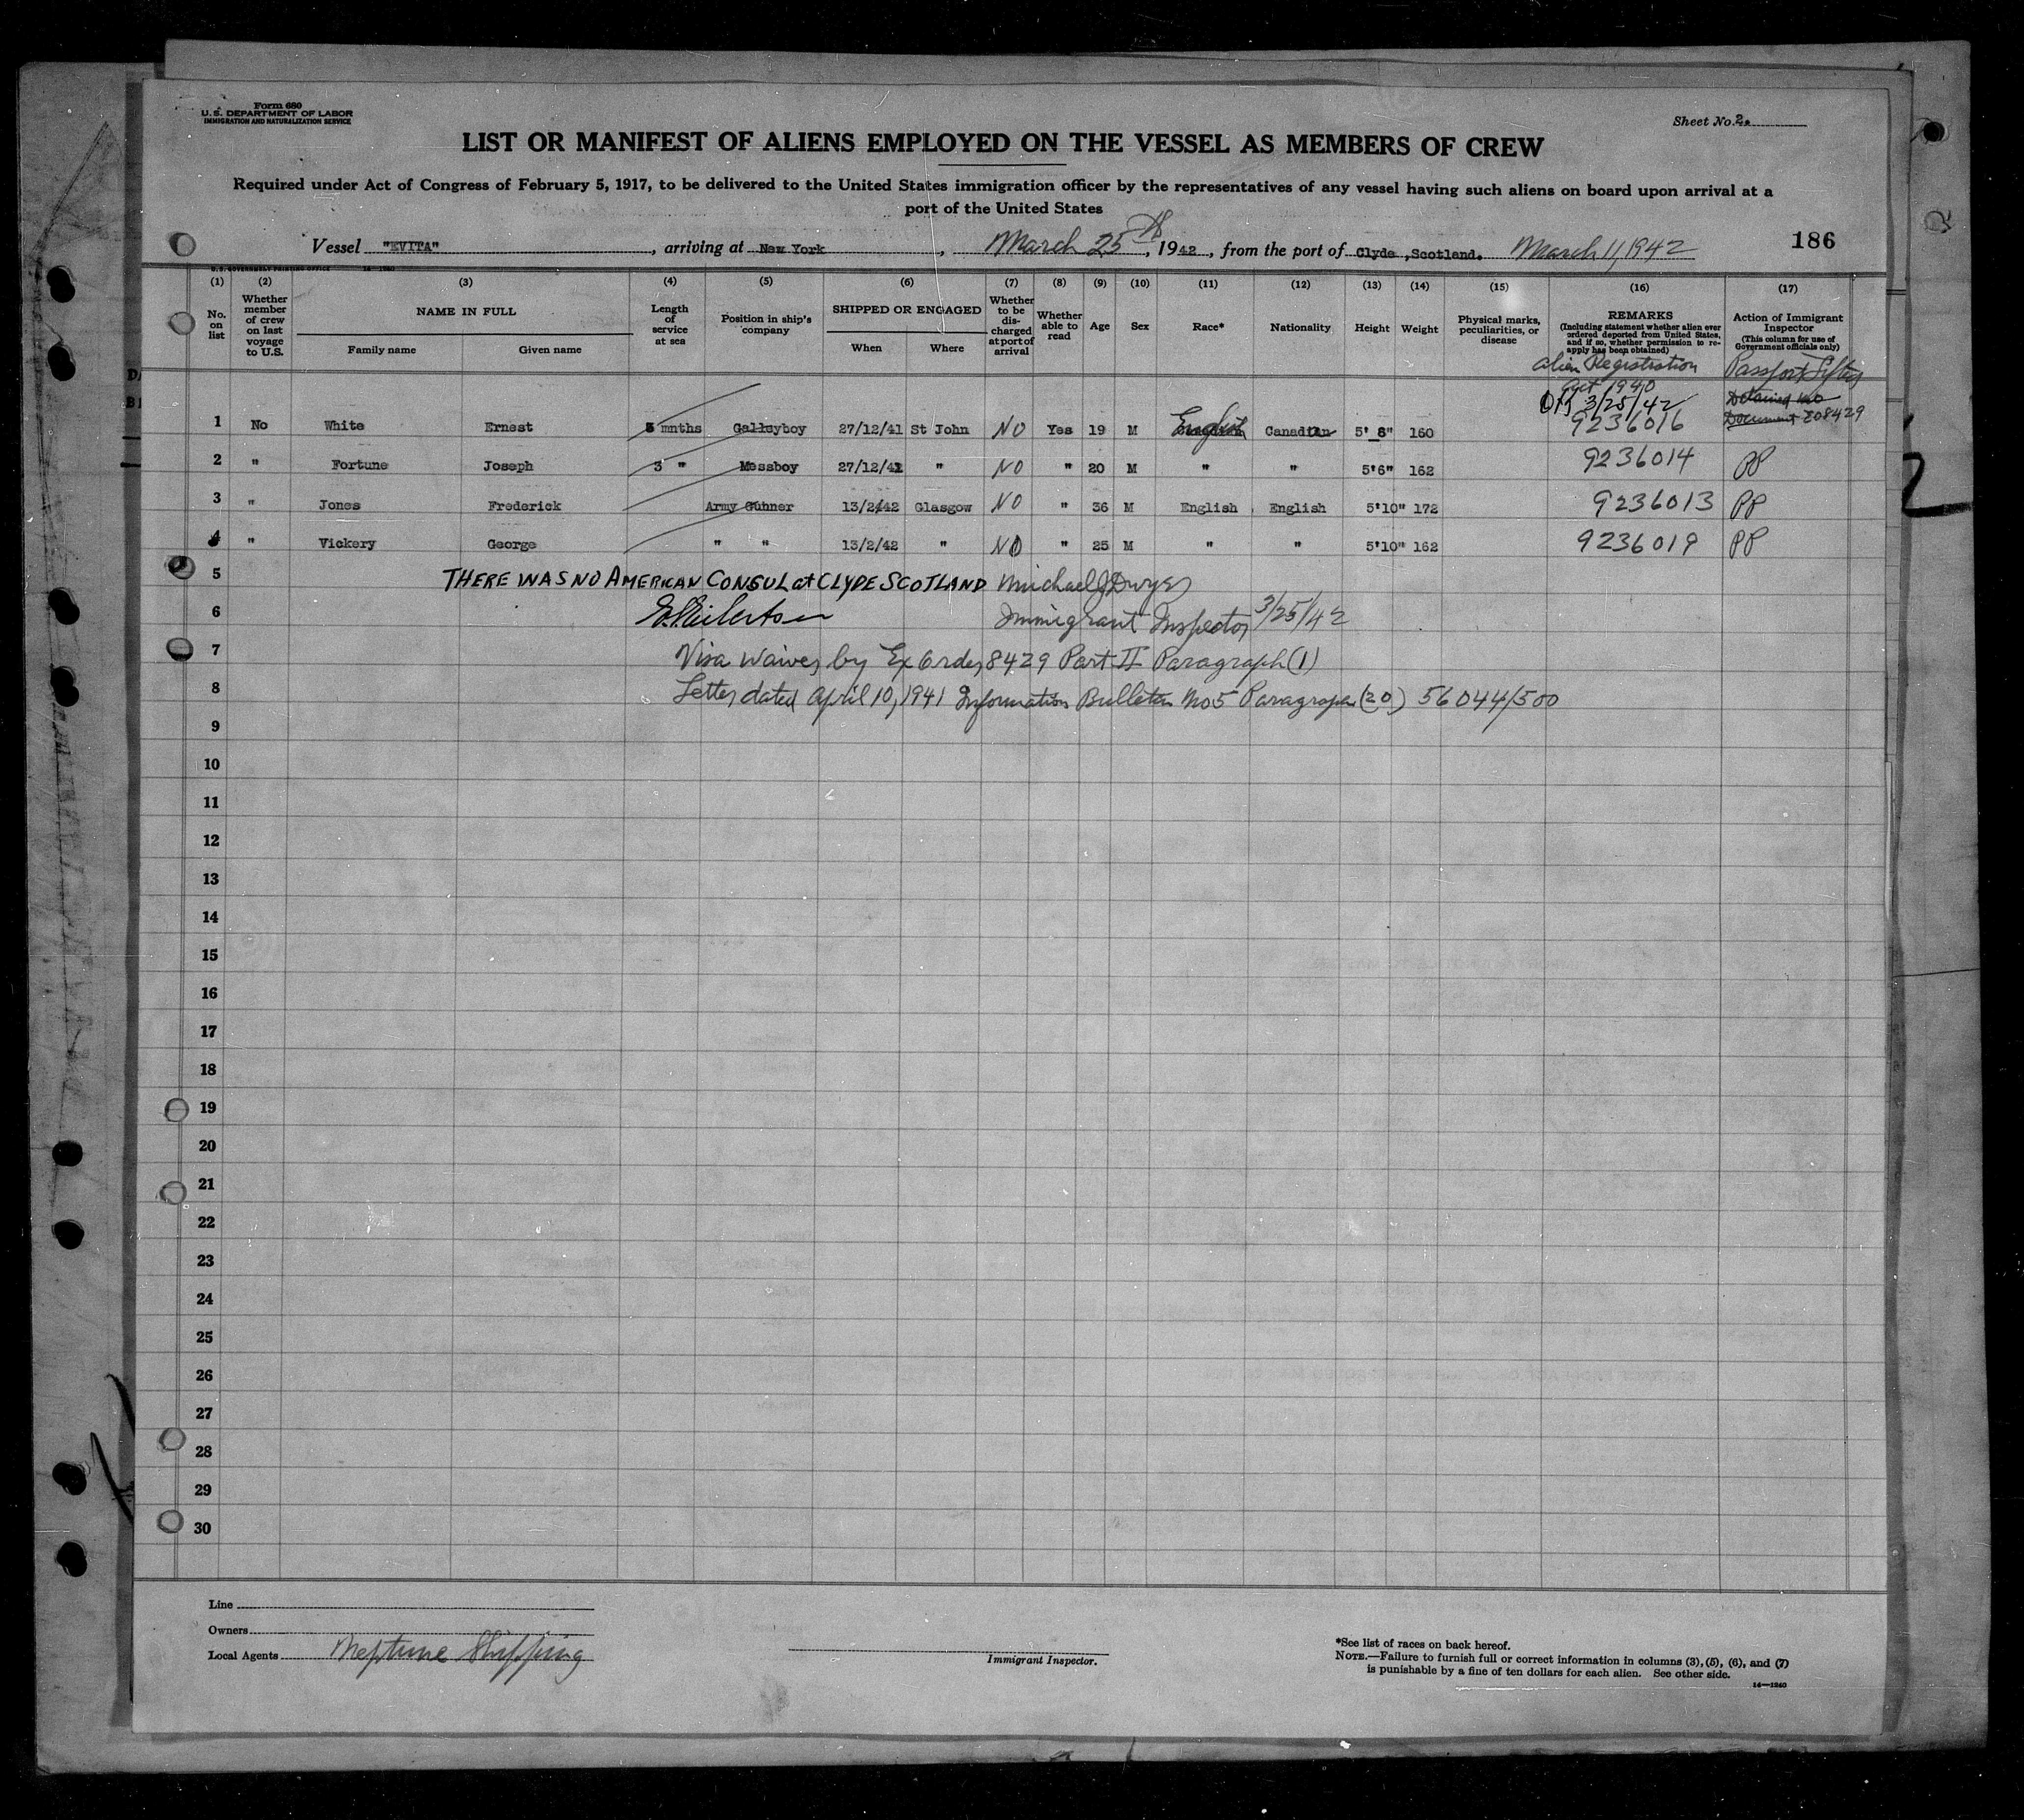 Form 680
U. S. DEPARTMENT OF LABOR
IMMIGRATION AND NATURALIZATION SERVICE
Sheet No. 2.
LIST OR MANIFEST OF ALIENS EMPLOYED ON THE VESSEL AS MEMBERS OF CREW
Required under Act of Congress of February 5, 1917, to be delivered to the United States immigration officer by the representatives of any vessel having such aliens on board upon arrival at a
port of the United States
Vessel "EVITA", arriving at New York, March 25th, 1942, from the port of Clyde, Scotland. March 11, 1942
186
U. S. GOVERNMENT PRINTING OFFICE 14—1240
(1) No. on list
(2) Whether member of crew on last voyage to U.S.
(3) NAME IN FULL Family name Given name
(4) Length of service at sea
(5) Position in ship's company
(6) SHIPPED OR ENGAGED When Where
(7) Whether to be discharged at port of arrival
(8) Whether able to read
(9) Age
(10) Sex
(11) Race*
(12) Nationality
(13) Height
(14) Weight
(15) Physical marks, peculiarities, or disease
(16) REMARKS (Including statement whether alien ever ordered deported from United States, and if so, whether permission to re-apply has been obtained)
(17) Action of Immigrant Inspector (This column for use of Government officials only)
Alien Registration
Act 1940
3/25/42
Passport
Detained
Document E08429
1 No White Ernest 5 mnths Galleyboy 27/12/41 St John NO Yes 19 M English Canadian 5' 8" 160 9236016
2 " Fortune Joseph 3 " Messboy 27/12/41 " NO " 20 M " " 5'6" 162 9236014 PP
3 " Jones Frederick Army Gunner 13/2/42 Glasgow NO " 36 M English English 5'10" 172 9236013 PP
4 " Vickery George " " 13/2/42 " NO " 25 M " " 5'10" 162 9236019 PP
5 THERE WAS NO AMERICAN CONSUL at CLYDE SCOTLAND Michael J Dwyer
6 Immigrant Inspector 3/25/42
7 Visa waived by Ex Order 8429 Part II Paragraph (1)
8 Letter dated April 10, 1941 Information Bulletin No 5 Paragraph (20) 56044/500
9
10
11
12
13
14
15
16
17
18
19
20
21
22
23
24
25
26
27
28
29
30
Line
Owners
Local Agents Neptune Shipping
Immigrant Inspector.
*See list of races on back hereof.
NOTE.—Failure to furnish full or correct information in columns (3), (5), (6), and (7)
is punishable by a fine of ten dollars for each alien. See other side.
14—1240